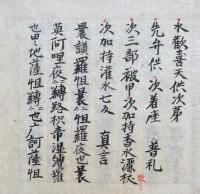 水歓喜天供次第
先弁供 次着座 普礼
次三部被甲 次加持香水 灑浄
次加持灌水七反 真言
曩謨羅怛曩怛羅夜也曩
莫阿哩夜縛路枳帝湿縛羅
也 地薩怛縛 也 訶薩怛